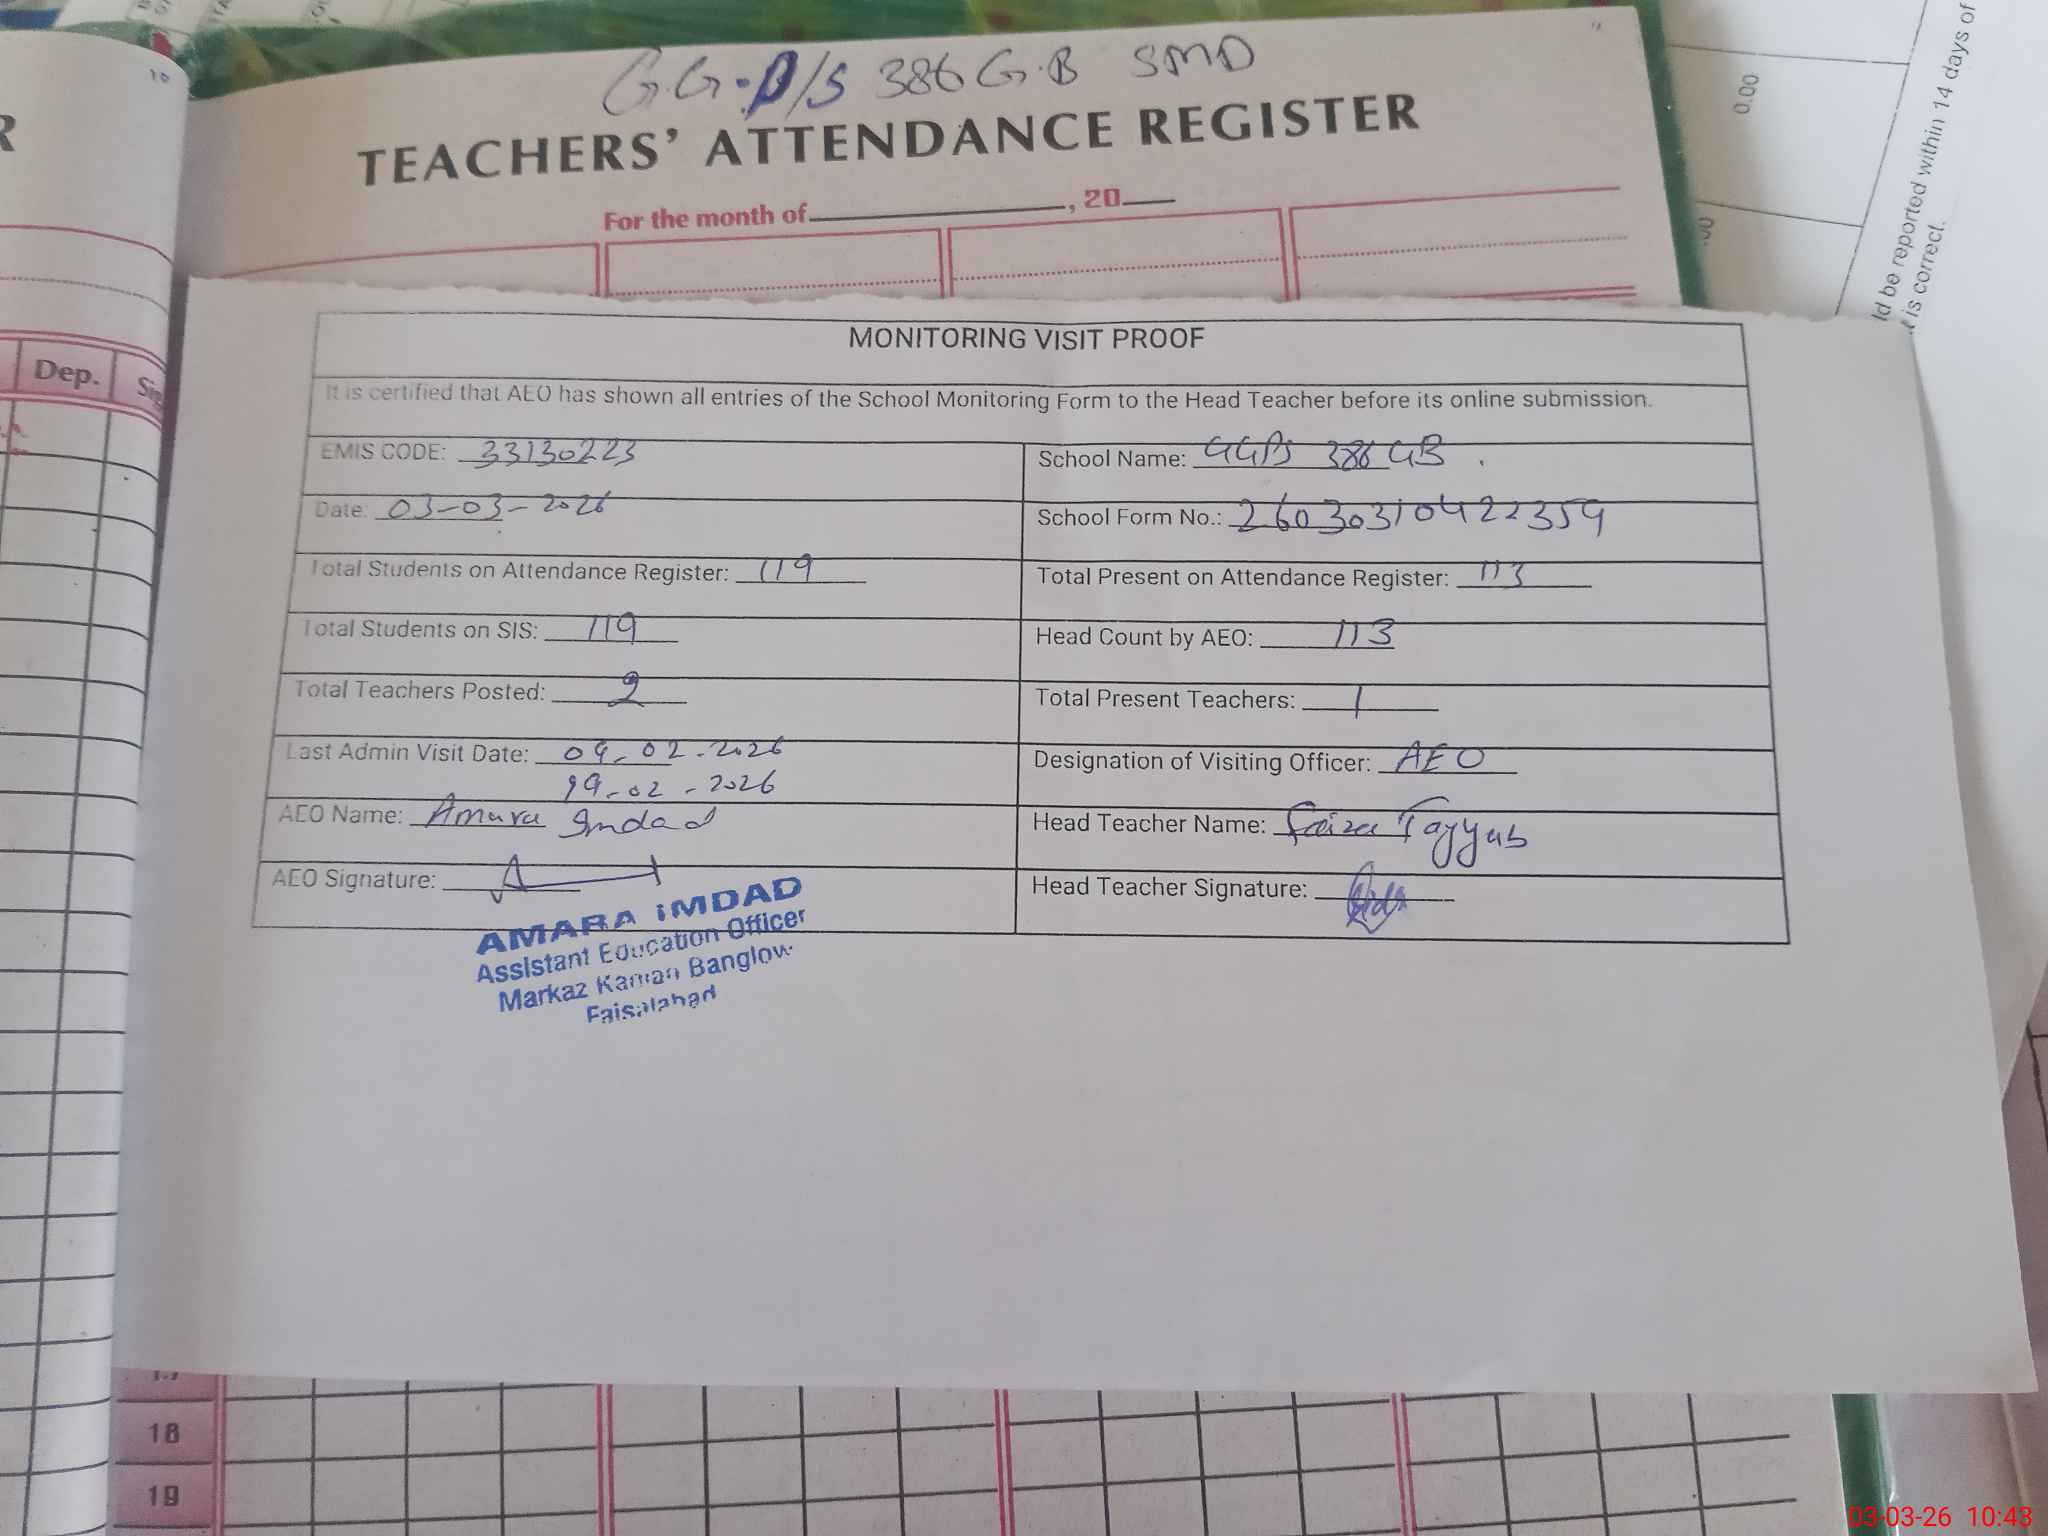 G.G.P/S 386 G.B SMD
TEACHERS' ATTENDANCE REGISTER
For the month of, 20
0.00
ld be reported within 14 days of
is correct.
R
Dep.
MONITORING VISIT PROOF
It is certified that AEO has shown all entries of the School Monitoring Form to the Head Teacher before its online submission.
EMIS CODE: 33130223 School Name: GGPS 386 GB
Date: 03-03-2026 School Form No.: 26030310422359
Total Students on Attendance Register: 119 Total Present on Attendance Register: 113
Total Students on SIS: 119 Head Count by AEO: 113
Total Teachers Posted: 2 Total Present Teachers: 1
Last Admin Visit Date: 09-02-2026 Designation of Visiting Officer: AEO
19-02-2026
AEO Name: Amara Imdad Head Teacher Name: Faiza Tayyab
AEO Signature: Head Teacher Signature:
AMARA IMDAD
Assistant Education Officer
Markaz Kanian Banglow
Faisalabad
18
19
03-03-26 10:43